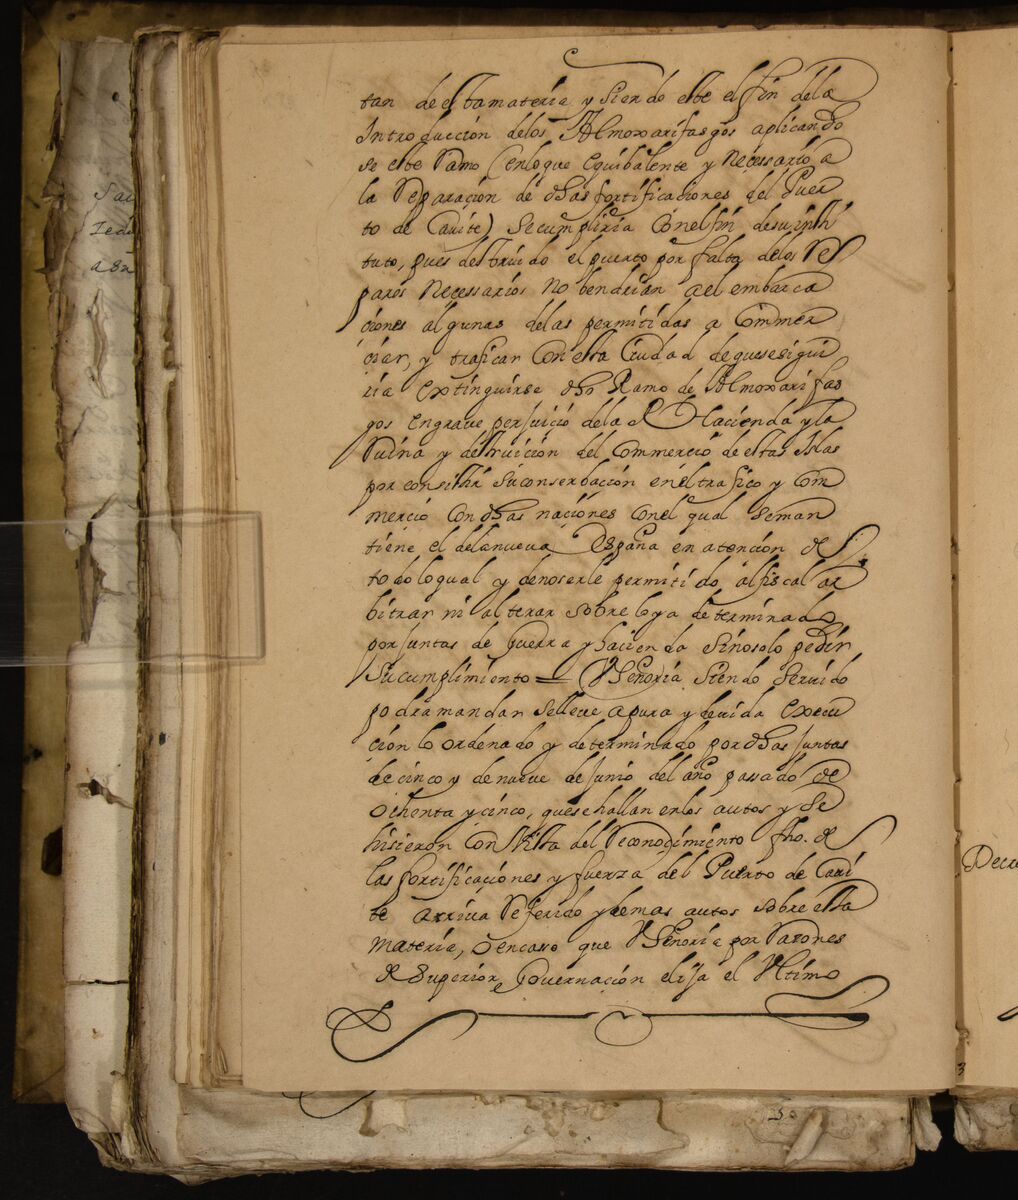 tan de esta materia y siendo este el fin dela
Introduccion delos Almoxarifasgos aplicando
se este Ramo (enloque equibalente y necessario a
la Reparacion de dhas fortificaciones del Puer
to de Cavite) Secumpliria Conelfin desuinsti
tuto, pues destruido el puerto por falta delos Re
paros Necessarios No bendrian ael embarca
ciones algunas delas permitidas a Commer
ciar, y traficar Con esta Ciudad dequeseseguir
ria extinguirse dho Ramo de Almoxarifas
gos Engrave perjuicio dela Rl Hacienda y la
Ruina y destruicion del Commercio de estas Islas
por consistir Suconserbacion enel trafico y Com
mercio Con dhas naciones Conel qual seman
tiene el delanueva España en atencion de
todo lo qual y denoserle permitido alfiscal ar
bitrar ni alterar sobre loya determinado
por Juntas de Guerra y hacienda Sinosolo pedir
Su cumplimiento = VSeñoria Siendo Servido
podra mandar selleve apura y devida execu
cion lo ordenado y determinado por dhas Juntas
de cinco y de nueve de Junio del año passado de
ochenta y cinco, quesehallan enlos autos y se
hisieron Con Vista del Reconocimiento fho. de
las fortificaciones y fuerza del Puerto de Cavi
te arriva Referido y demas autos sobre esta
materia, o encaso que VSeñoria por Razones
de Superior Governacion elija el Vltimo
Decre